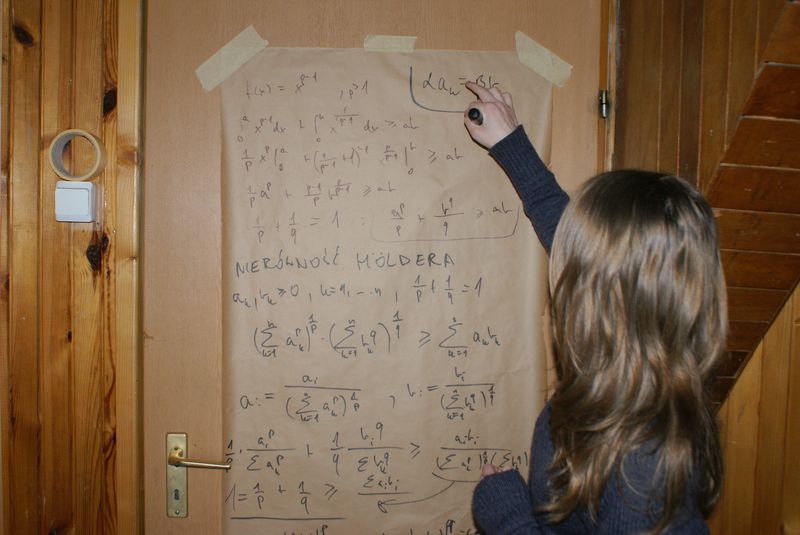 f(x) = x^{p-1} , p>1
αa_k =
∫_0^a x^{p-1} dx + ∫_0^b x^{\frac{1}{p-1}} dx ≥ ab
\frac{1}{p} x^p |_0^a + (\frac{1}{p-1}+1)^{-1} x^{\frac{p}{p-1}} |_0^b ≥ ab
\frac{1}{p} a^p + \frac{p-1}{p} b^{\frac{p}{p-1}} ≥ ab
\frac{1}{p} + \frac{1}{q} = 1 : \frac{a^p}{p} + \frac{b^q}{q} ≥ ab
NIERÓWNOŚĆ HÖLDERA
a_k, b_k ≥ 0 , k=1, ... n , \frac{1}{p} + \frac{1}{q} = 1
(\sum_{k=1}^n a_k^p)^{\frac{1}{p}} · (\sum_{k=1}^n b_k^q)^{\frac{1}{q}} ≥ \sum_{k=1}^n a_k b_k
a := \frac{a_i}{(\sum_{k=1}^n a_k^p)^{\frac{1}{p}}} , b := \frac{b_i}{(\sum_{k=1}^n b_k^q)^{\frac{1}{q}}}
\frac{1}{p} · \frac{a_i^p}{\sum a_k^p} + \frac{1}{q} \frac{b_i^q}{\sum b_k^q} ≥ \frac{a_i b_i}{(\sum a_k^p)^{\frac{1}{p}} (\sum b_k^q)
1 = \frac{1}{p} + \frac{1}{q} ≥ \frac{\sum a_i b_i}